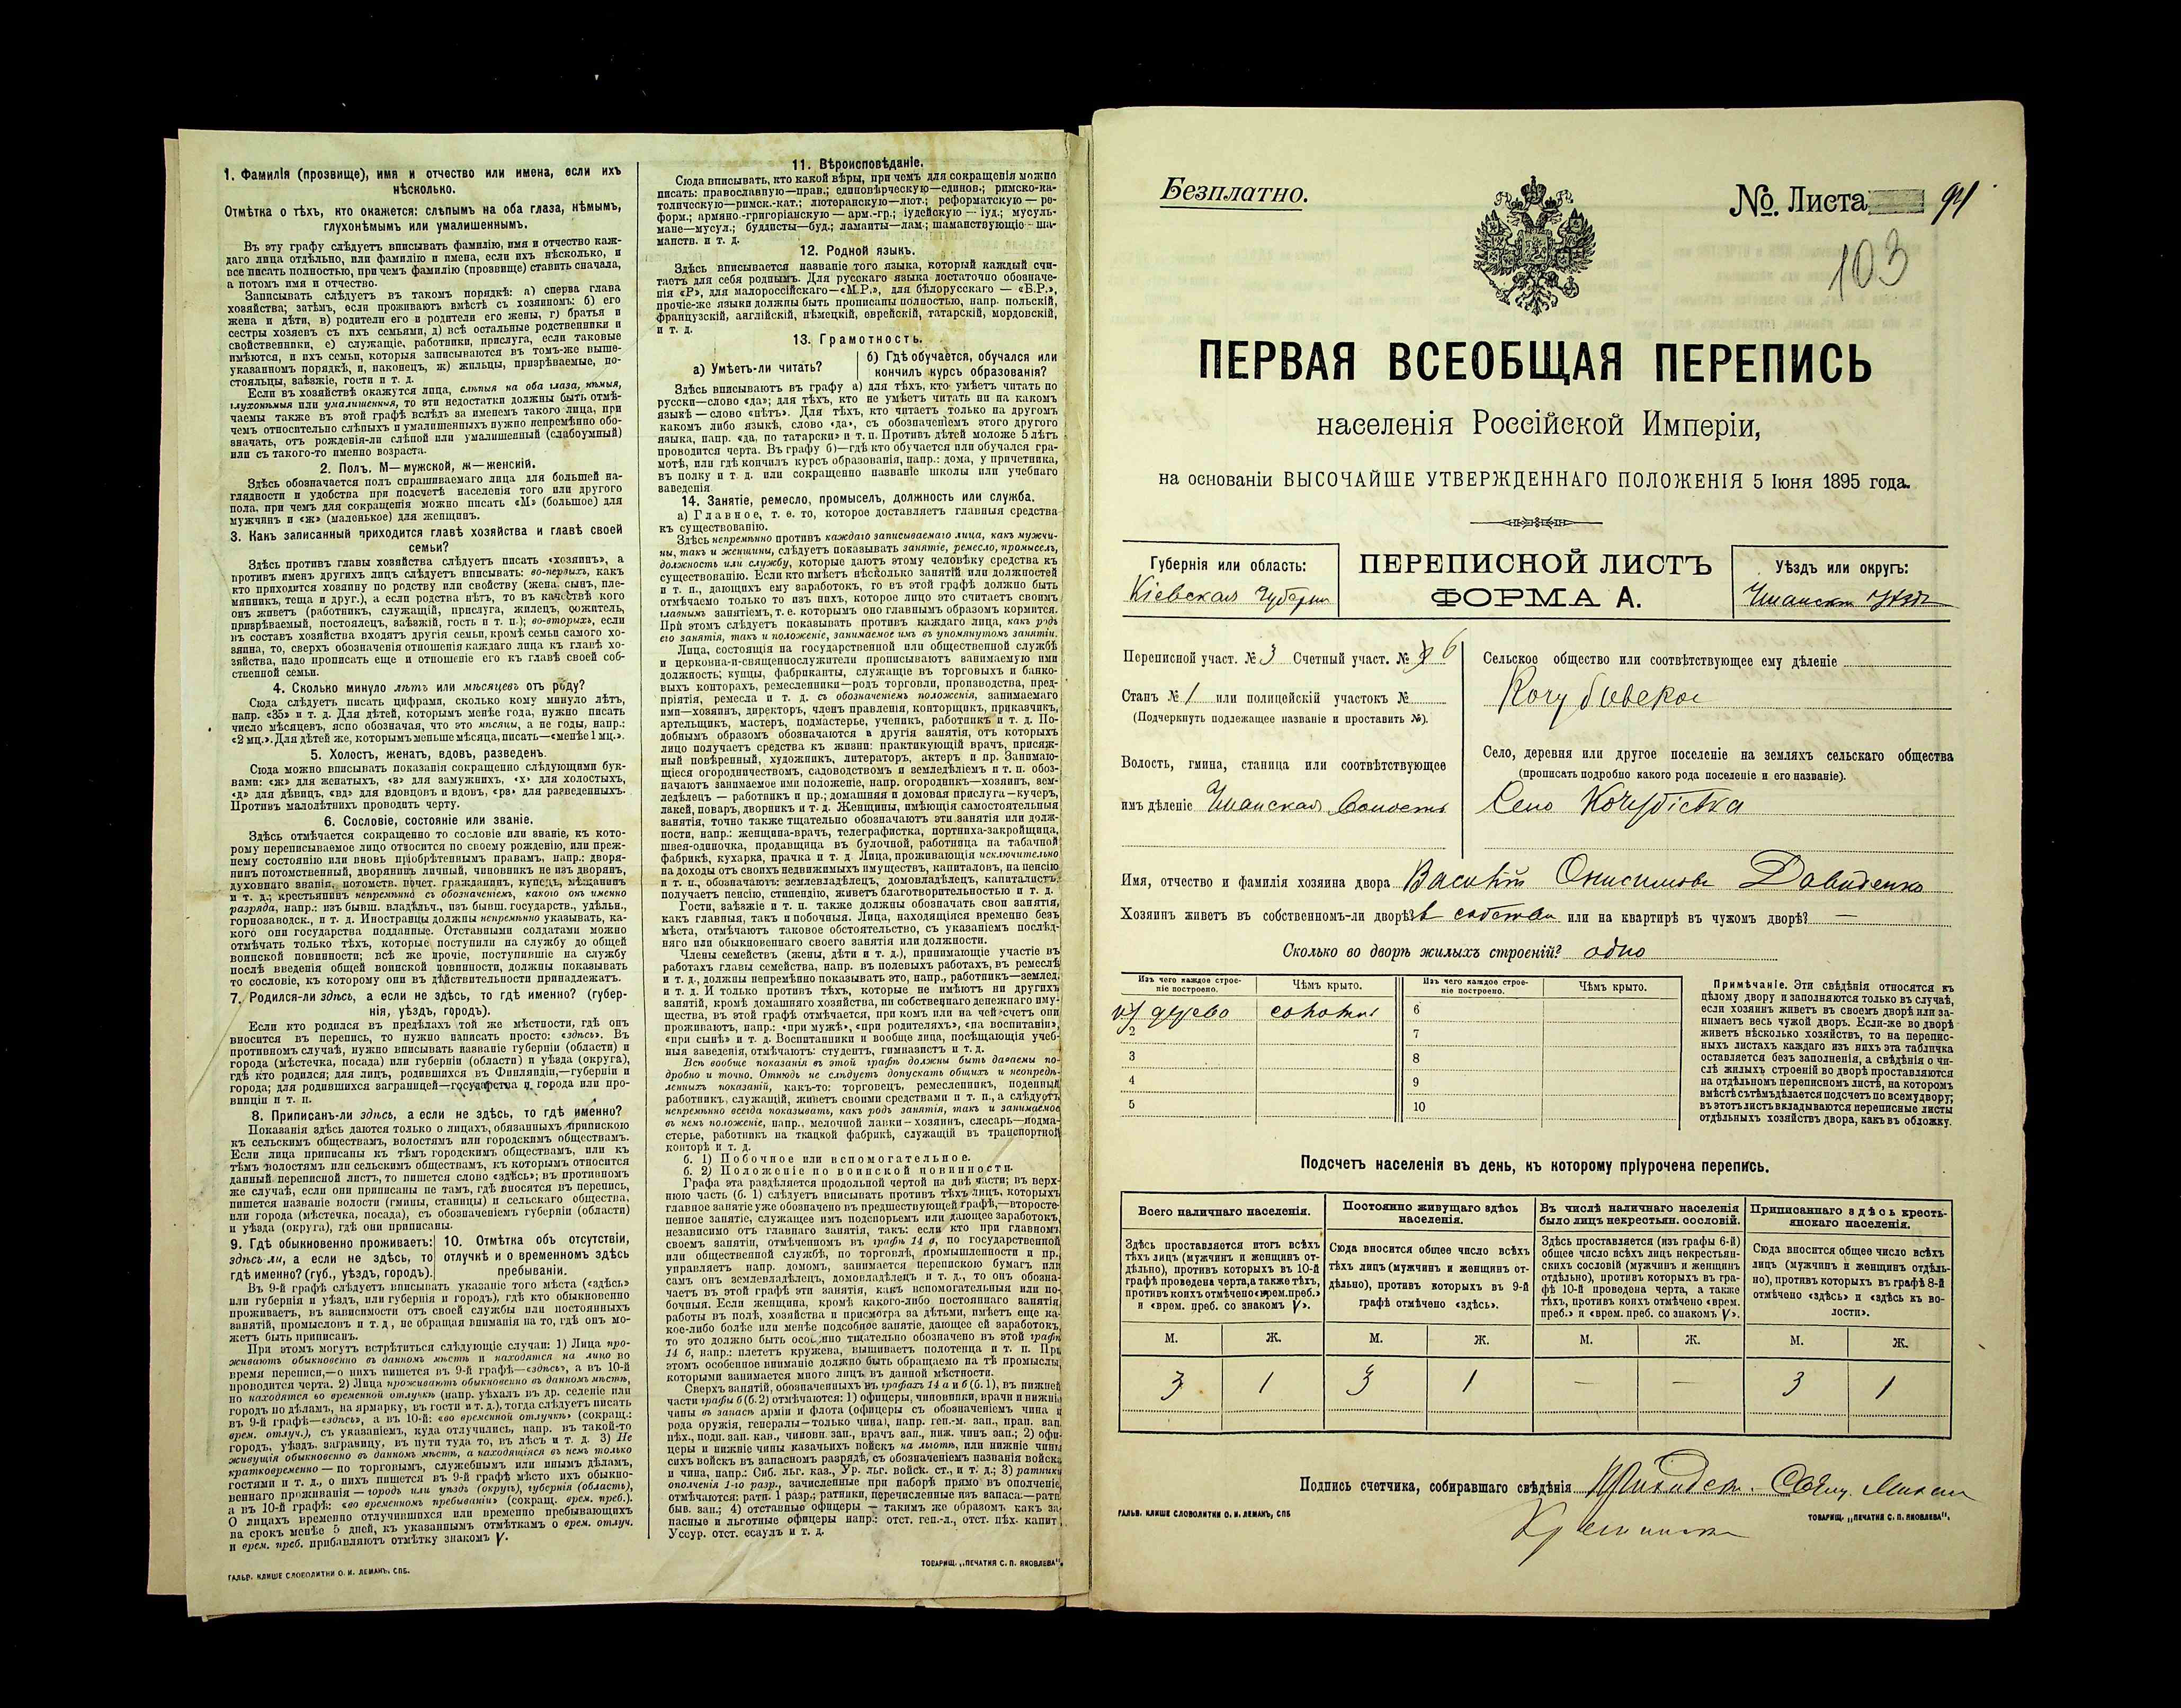 1. Фамилія (прозвище), имя и отчество или имена, если ихъ
нѣсколько.
Отмѣтка о тѣхъ, кто окажется: слѣпымъ на оба глаза, нѣмымъ,
глухонѣмымъ или умалишеннымъ.
Въ эту графу слѣдуетъ вписывать фамилію, имя и отчество каж-
даго лица отдѣльно, или фамилію и имена, если ихъ нѣсколько, и
все писать полностью, при чемъ фамилію (прозвище) ставить сначала,
а потомъ имя и отчество.
Записывать слѣдуетъ въ такомъ порядкѣ: а) сперва глава
хозяйства; затѣмъ, если проживаютъ вмѣстѣ съ хозяиномъ: б) его
жена и дѣти, в) родители его и родители его жены, г) братья и
сестры хозяевъ съ ихъ семьями, д) всѣ остальные родственники и
свойственники, е) служащіе, работники, прислуга, если таковые
имѣются, и ихъ семьи, которыя записываются въ томъ-же выше-
указанномъ порядкѣ, и, наконецъ, ж) жильцы, призрѣваемые, по-
стояльцы, заѣзжіе, гости и т. д.
Если въ хозяйствѣ окажутся лица, слѣпыя на оба глаза, нѣмыя,
глухонѣмыя или умалишенныя, то эти недостатки должны быть отмѣ-
чаемы также въ этой графѣ вслѣдъ за именемъ такого лица, при
чемъ относительно слѣпыхъ и умалишенныхъ нужно непремѣнно обо-
значать, отъ рожденія-ли слѣпой или умалишенный (слабоумный)
или съ такого-то именно возраста.
2. Полъ. М—мужской, ж—женскій.
Здѣсь обозначается полъ спрашиваемаго лица для большей на-
глядности и удобства при подсчетѣ населенія того или другого
пола, при чемъ для сокращенія можно писать «М» (большое) для
мужчинъ и «ж» (маленькое) для женщинъ.
3. Какъ записанный приходится главѣ хозяйства и главѣ своей
семьи?
Здѣсь противъ главы хозяйства слѣдуетъ писать «хозяинъ», а
противъ именъ другихъ лицъ слѣдуетъ вписывать: во-первыхъ, какъ
кто приходится хозяину по родству или свойству (жена, сынъ, пле-
мянникъ, теща и друг.), а если родства нѣтъ, то въ качествѣ кого
онъ живетъ (работникъ, служащій, прислуга, жилецъ, сожитель,
призрѣваемый, постоялецъ, заѣзжій, гость и т. п.); во-вторыхъ, если
въ составъ хозяйства входятъ другія семьи, кромѣ семьи самого хо-
зяина, то, сверхъ обозначенія отношенія каждаго лица къ главѣ хо-
зяйства, надо прописать еще и отношеніе его къ главѣ своей соб-
ственной семьи.
4. Сколько минуло лѣтъ или мѣсяцевъ отъ роду?
Сюда слѣдуетъ писать цифрами, сколько кому минуло лѣтъ,
напр. «35» и т. д. Для дѣтей, которымъ менѣе года, нужно писать
число мѣсяцевъ, ясно обозначая, что это мѣсяцы, а не годы, напр.:
«2 мц.». Для дѣтей же, которымъ меньше мѣсяца, писать—«менѣе 1 мц.».
5. Холостъ, женатъ, вдовъ, разведенъ.
Сюда можно вписывать показанія сокращенно слѣдующими бук-
вами: «ж» для женатыхъ, «з» для замужнихъ, «х» для холостыхъ,
«д» для дѣвицъ, «вд» для вдовцовъ и вдовъ, «рз» для разведенныхъ.
Противъ малолѣтнихъ проводить черту.
6. Сословіе, состояніе или званіе.
Здѣсь отмѣчается сокращенно то сословіе или званіе, къ кото-
рому переписываемое лицо относится по своему рожденію, или преж-
нему состоянію или вновь пріобрѣтеннымъ правамъ, напр.: дворя-
нинъ потомственный, дворянинъ личный, чиновникъ не изъ дворянъ,
духовнаго званія, потомств. почет. гражданинъ, купецъ, мѣщанинъ
и т. д.; крестьянинъ непремѣнно съ обозначеніемъ, какого онъ именно
разряда, напр.: изъ бывш. владѣльч., изъ бывш. государств., удѣльн.,
горнозаводск., и т. д. Иностранцы должны непремѣнно указывать, ка-
кого они государства подданные. Отставными солдатами можно
отмѣчать только тѣхъ, которые поступили на службу до общей
воинской повинности; всѣ же прочіе, поступившіе на службу
послѣ введенія общей воинской повинности, должны показывать
то сословіе, къ которому они въ дѣйствительности принадлежатъ.
7. Родился-ли здѣсь, а если не здѣсь, то гдѣ именно? (губер-
нія, уѣздъ, городъ).
Если кто родился въ предѣлахъ той же мѣстности, гдѣ онъ
вносится въ перепись, то нужно написать просто: «здѣсь». Въ
противномъ случаѣ, нужно вписывать названіе губерніи (области) и
города (мѣстечка, посада) или губерніи (области) и уѣзда (округа),
гдѣ кто родился; для лицъ, родившихся въ Финляндіи,—губерніи и
города; для родившихся заграницей—государства и города или про-
винціи и т. п.
8. Приписанъ-ли здѣсь, а если не здѣсь, то гдѣ именно?
Показанія здѣсь даются только о лицахъ, обязанныхъ припискою
къ сельскимъ обществамъ, волостямъ или городскимъ обществамъ.
Если лица приписаны къ тѣмъ городскимъ обществамъ, или къ
тѣмъ волостямъ или сельскимъ обществамъ, къ которымъ относится
данный переписной листъ, то пишется слово «здѣсь»; въ противномъ
же случаѣ, если они приписаны не тамъ, гдѣ вносятся въ перепись,
пишется названіе волости (гмины, станицы) и сельскаго общества,
или города (мѣстечка, посада), съ обозначеніемъ губерніи (области)
и уѣзда (округа), гдѣ они приписаны.
9. Гдѣ обыкновенно проживаетъ:
здѣсь-ли, а если не здѣсь, то
гдѣ именно? (губ., уѣздъ, городъ).
10. Отмѣтка объ отсутствіи,
отлучкѣ и о временномъ здѣсь
пребываніи.
Въ 9-й графѣ слѣдуетъ вписывать указаніе того мѣста («здѣсь»
или губернія и уѣздъ, или губернія и городъ), гдѣ кто обыкновенно
проживаетъ, въ зависимости отъ своей службы или постоянныхъ
занятій, промысловъ и т. д., не обращая вниманія на то, гдѣ онъ мо-
жетъ быть приписанъ.
При этомъ могутъ встрѣтиться слѣдующіе случаи: 1) Лица про-
живаютъ обыкновенно въ данномъ мѣстѣ и находятся на лицо во
время переписи,—о нихъ пишется въ 9-й графѣ—«здѣсь», а въ 10-й
проводится черта. 2) Лица проживаютъ обыкновенно въ данномъ мѣстѣ,
но находятся во временной отлучкѣ (напр. уѣхалъ въ др. селеніе или
городъ по дѣламъ, на ярмарку, въ гости и т. д.), тогда слѣдуетъ писать
въ 9-й графѣ—«здѣсь», а въ 10-й: «во временной отлучкѣ» (сокращ.:
врем. отлуч.), съ указаніемъ, куда отлучились, напр. въ такой-то
городъ, уѣздъ, заграницу, въ пути туда то, въ лѣсъ и т. д. 3) Не
живущія обыкновенно въ данномъ мѣстѣ, а находящіяся въ немъ только
кратковременно — по торговымъ, служебнымъ или инымъ дѣламъ,
гостями и т. д., о нихъ пишется въ 9-й графѣ мѣсто ихъ обыкно-
веннаго проживанія — городъ или уѣздъ (округъ), губернія (область),
а въ 10-й графѣ: «во временномъ пребываніи» (сокращ. врем. преб.).
О лицахъ временно отлучившихся или временно пребывающихъ
на срокъ менѣе 5 дней, къ указаннымъ отмѣткамъ о врем. отлуч.
и врем. преб. прибавляютъ отмѣтку знакомъ V.
ГАЛЬВ. КЛИШЕ СЛОВОЛИТНИ О. И. ЛЕМАНЪ, СПБ.
11. Вѣроисповѣданіе.
Сюда вписывать, кто какой вѣры, при чемъ для сокращенія можно
писать: православную—прав.; единовѣрческую—единов.; римско-ка-
толическую—римск.-кат.; лютеранскую—лют.; реформатскую — ре-
форм.; армяно-григоріанскую — арм.-гр.; іудейскую — іуд.; мусуль-
мане—мусул.; буддисты—буд.; ламаиты—лам.; шаманствующіе—ша-
манств. и т. д.
12. Родной языкъ.
Здѣсь вписывается названіе того языка, который каждый счи-
таетъ для себя роднымъ. Для русскаго языка достаточно обозначе-
нія «Р», для малороссійскаго—«М.Р.», для бѣлорусскаго — «Б.Р.»,
прочіе-же языки должны быть прописаны полностью, напр. польскій,
французскій, англійскій, нѣмецкій, еврейскій, татарскій, мордовскій,
и т. д.
13. Грамотность.
а) Умѣетъ-ли читать?
б) Гдѣ обучается, обучался или
кончилъ курсъ образованія?
Здѣсь вписываютъ въ графу а) для тѣхъ, кто умѣетъ читать по
русски—слово «да»; для тѣхъ, кто не умѣетъ читать ни на какомъ
языкѣ — слово «нѣтъ». Для тѣхъ, кто читаетъ только на другомъ
какомъ либо языкѣ, слово «да», съ обозначеніемъ этого другого
языка, напр. «да, по татарски» и т. п. Противъ дѣтей моложе 5 лѣтъ
проводится черта. Въ графу б)—гдѣ кто обучается или обучался гра-
мотѣ, или гдѣ кончилъ курсъ образованія, напр.: дома, у причетника,
въ полку и т. д. или сокращенно названіе школы или учебнаго
заведенія.
14. Занятіе, ремесло, промыселъ, должность или служба.
а) Главное, т. е. то, которое доставляетъ главныя средства
къ существованію.
Здѣсь непремѣнно противъ каждаго записываемаго лица, какъ мужчи-
ны, такъ и женщины, слѣдуетъ показывать занятіе, ремесло, промыселъ,
должность или службу, которые даютъ этому человѣку средства къ
существованію. Если кто имѣетъ нѣсколько занятій или должностей
и т. п., дающихъ ему заработокъ, то въ этой графѣ должно быть
отмѣчаемо только то изъ нихъ, которое лицо это считаетъ своимъ
главнымъ занятіемъ, т. е. которымъ оно главнымъ образомъ кормится.
При этомъ слѣдуетъ показывать противъ каждаго лица, какъ родъ
его занятія, такъ и положеніе, занимаемое имъ въ упомянутомъ занятіи.
Лица, состоящія на государственной или общественной службѣ
и церковно-и-священнослужители прописываютъ занимаемую ими
должность; купцы, фабриканты, служащіе въ торговыхъ и банко-
выхъ конторахъ, ремесленники—родъ торговли, производства, пред-
пріятія, ремесла и т. д. съ обозначеніемъ положенія, занимаемаго
ими—хозяинъ, директоръ, членъ правленія, конторщикъ, приказчикъ,
артельщикъ, мастеръ, подмастерье, ученикъ, работникъ и т. д. По-
добнымъ образомъ обозначаются и другія занятія, отъ которыхъ
лицо получаетъ средства къ жизни: практикующій врачъ, присяж-
ный повѣренный, художникъ, литераторъ, актеръ и пр. Занимаю-
щіеся огородничествомъ, садоводствомъ и земледѣліемъ и т. п. обоз-
начаютъ занимаемое ими положеніе, напр. огородникъ—хозяинъ, зем-
ледѣлецъ — работникъ и пр.; домашняя и домовая прислуга—кучеръ,
лакей, поваръ, дворникъ и т. д. Женщины, имѣющія самостоятельныя
занятія, точно также тщательно обозначаютъ эти занятія или долж-
ности, напр.: женщина-врачъ, телеграфистка, портниха-закройщица,
швея-одиночка, продавщица въ булочной, работница на табачной
фабрикѣ, кухарка, прачка и т. д. Лица, проживающія исключительно
на доходы отъ своихъ недвижимыхъ имуществъ, капиталовъ, на пенсію
и т. п., обозначаютъ: землевладѣлецъ, домовладѣлецъ, капиталистъ,
получаетъ пенсію, стипендію, живетъ благотворительностью и т. д.
Гости, заѣзжіе и т. п. также должны обозначать свои занятія,
какъ главныя, такъ и побочныя. Лица, находящіяся временно безъ
мѣста, отмѣчаютъ таковое обстоятельство, съ указаніемъ послѣд-
няго или обыкновеннаго своего занятія или должности.
Члены семействъ (жены, дѣти и т. д.), принимающіе участіе въ
работахъ главы семейства, напр. въ полевыхъ работахъ, въ ремеслѣ
и т. д., должны непремѣнно показывать это, напр., работникъ—землед.
и т. д. И только противъ тѣхъ, которые не имѣютъ ни другихъ
занятій, кромѣ домашняго хозяйства, ни собственнаго денежнаго иму-
щества, въ этой графѣ отмѣчается, при комъ или на чей счетъ они
проживаютъ, напр.: «при мужѣ», «при родителяхъ», «на воспитаніи»,
«при сынѣ» и т. д. Воспитанники и вообще лица, посѣщающія учеб-
ныя заведенія, отмѣчаютъ: студентъ, гимназистъ и т. д.
Всѣ вообще показанія въ этой графѣ должны быть даваемы по-
дробно и точно. Отнюдь не слѣдуетъ допускать общихъ и неопредѣ-
ленныхъ показаній, какъ-то: торговецъ, ремесленникъ, поденный
работникъ, служащій, живетъ своими средствами и т. п., а слѣдуетъ
непремѣнно всегда показывать, какъ родъ занятія, такъ и занимаемое
въ немъ положеніе, напр., мелочной лавки — хозяинъ, слесарь—подма-
стерье, работникъ на ткацкой фабрикѣ, служащій въ транспортной
конторѣ и т. д.
б. 1) Побочное или вспомогательное.
б. 2) Положеніе по воинской повинности.
Графа эта раздѣляется продольной чертой на двѣ части; въ верх-
нюю часть (б. 1) слѣдуетъ вписывать противъ тѣхъ лицъ, которыхъ
главное занятіе уже обозначено въ предшествующей графѣ,—второсте-
пенное занятіе, служащее имъ подспорьемъ или дающее заработокъ,
независимо отъ главнаго занятія, такъ: если кто при главномъ
своемъ занятіи, отмѣченномъ въ графѣ 14 а, по государственной
или общественной службѣ, по торговлѣ, промышленности и пр.,
управляетъ напр. домомъ, занимается перепискою бумагъ или
самъ онъ землевладѣлецъ, домовладѣлецъ и т. д., то онъ обозна-
чаетъ въ этой графѣ эти занятія, какъ вспомогательныя или по-
бочныя. Если женщина, кромѣ какого-либо постояннаго занятія,
работы въ полѣ, хозяйства и присмотра за дѣтьми, имѣетъ еще ка-
кое-либо болѣе или менѣе подсобное занятіе, дающее ей заработокъ,
то это должно быть особенно тщательно обозначено въ этой графѣ
14 б, напр.: плететъ кружева, вышиваетъ полотенца и т. п. При
этомъ особенное вниманіе должно быть обращаемо на тѣ промыслы,
которыми занимается много лицъ въ данной мѣстности.
Сверхъ занятій, обозначенныхъ въ графахъ 14 а и б (б. 1), въ нижней
части графы б (б. 2) отмѣчаются: 1) офицеры, чиновники, врачи и нижніе
чины въ запасѣ арміи и флота (офицеры съ обозначеніемъ чина и
рода оружія, генералы—только чина), напр. ген.-м. зап., прап. зап.
пѣх., подп. зап. кав., чиновн. зап., врачъ зап., ниж. чинъ зап.; 2) офи-
церы и нижніе чины казачьихъ войскъ на льготѣ, или нижніе чины
сихъ войскъ въ запасномъ разрядѣ, съ обозначеніемъ названія войска
и чина, напр.: Сиб. льг. каз., Ур. льг. войск. ст., и т. д.; 3) ратники
ополченія 1-го разр., зачисленные при наборѣ прямо въ ополченіе,
отмѣчаются: ратн. 1 разр.; ратники, перечисленные изъ запаса.—ратн.
быв. зап.; 4) отставные офицеры — такимъ же образомъ какъ за-
пасные и льготные офицеры напр.: отст. ген.-л., отст. пѣх. капит.,
Уссур. отст. есаулъ и т. д.
ТОВАРИЩ. „ПЕЧАТНЯ С. П. ЯКОВЛЕВА".
Безплатно.
№. Листа 94
103
ПЕРВАЯ ВСЕОБЩАЯ ПЕРЕПИСЬ
населенія Россійской Имперіи,
на основаніи ВЫСОЧАЙШЕ УТВЕРЖДЕННАГО ПОЛОЖЕНІЯ 5 Іюня 1895 года.
Губернія или область:
Кіевская Губерн
ПЕРЕПИСНОЙ ЛИСТЪ
ФОРМА А.
Уѣздъ или округъ:
Уманск Уѣздъ
Переписной участ. № 3 Счетный участ. № 6
Станъ № 1 или полицейскій участокъ №
(Подчеркнуть подлежащее названіе и проставить №).
Волость, гмина, станица или соотвѣтствующее
имъ дѣленіе Уманская Волость
Сельское общество или соотвѣтствующее ему дѣленіе
Кочубіевское
Село, деревня или другое поселеніе на земляхъ сельскаго общества
(прописать подробно какого рода поселеніе и его названіе).
Село Кочубіевка
Имя, отчество и фамилія хозяина двора Василій Онисимовъ Давиденко
Хозяинъ живетъ въ собственномъ-ли дворѣ? в собствен или на квартирѣ въ чужомъ дворѣ? —
Сколько во дворѣ жилыхъ строеній? одно
Изъ чего каждое строе-
ніе построено.
Чѣмъ крыто.
Изъ чего каждое строе-
ніе построено.
Чѣмъ крыто.
1 дерево соломы 6
2 7
3 8
4 9
5 10
Примѣчаніе. Эти свѣдѣнія относятся къ
цѣлому двору и заполняются только въ случаѣ,
если хозяинъ живетъ въ своемъ дворѣ или за-
нимаетъ весь чужой дворъ. Если-же во дворѣ
живетъ нѣсколько хозяйствъ, то на перепис-
ныхъ листахъ каждаго изъ нихъ эта табличка
оставляется безъ заполненія, а свѣдѣнія о чи-
слѣ жилыхъ строеній во дворѣ проставляются
на отдѣльномъ переписномъ листѣ, на которомъ
вмѣстѣ съ тѣмъ дѣлается подсчетъ по всему двору;
въ этотъ листъ вкладываются переписные листы
отдѣльныхъ хозяйствъ двора, какъ въ обложку.
Подсчетъ населенія въ день, къ которому пріурочена перепись.
Всего наличнаго населенія.
Постоянно живущаго здѣсь
населенія.
Въ числѣ наличнаго населенія
было лицъ некрестьян. сословій.
Приписаннаго здѣсь кресть-
янскаго населенія.
Здѣсь проставляется итогъ всѣхъ
тѣхъ лицъ (мужчинъ и женщинъ от-
дѣльно), противъ которыхъ въ 10-й
графѣ проведена черта, а также тѣхъ,
противъ коихъ отмѣчено «врем. преб.»
и «врем. преб. со знакомъ V».
Сюда вносится общее число всѣхъ
тѣхъ лицъ (мужчинъ и женщинъ от-
дѣльно), противъ которыхъ въ 9-й
графѣ отмѣчено «здѣсь».
Здѣсь проставляется (изъ графы 6-й)
общее число всѣхъ лицъ некрестьян-
скихъ сословій (мужчинъ и женщинъ
отдѣльно), противъ которыхъ въ гра-
фѣ 10-й проведена черта, а также
тѣхъ, противъ коихъ отмѣчено «врем.
преб.» и «врем. преб. со знакомъ V».
Сюда вносится общее число всѣхъ
лицъ (мужчинъ и женщинъ отдѣль-
но), противъ которыхъ въ графѣ 8-й
отмѣчено «здѣсь» и «здѣсь къ во-
лости».
М. Ж. М. Ж. М. Ж. М. Ж.
3 1 3 1 — — 3 1
Подпись счетчика, собиравшаго свѣдѣнія
ГАЛЬВ. КЛИШЕ СЛОВОЛИТНИ О. И. ЛЕМАНЪ, СПБ
ТОВАРИЩ. „ПЕЧАТНЯ С. П. ЯКОВЛЕВА".